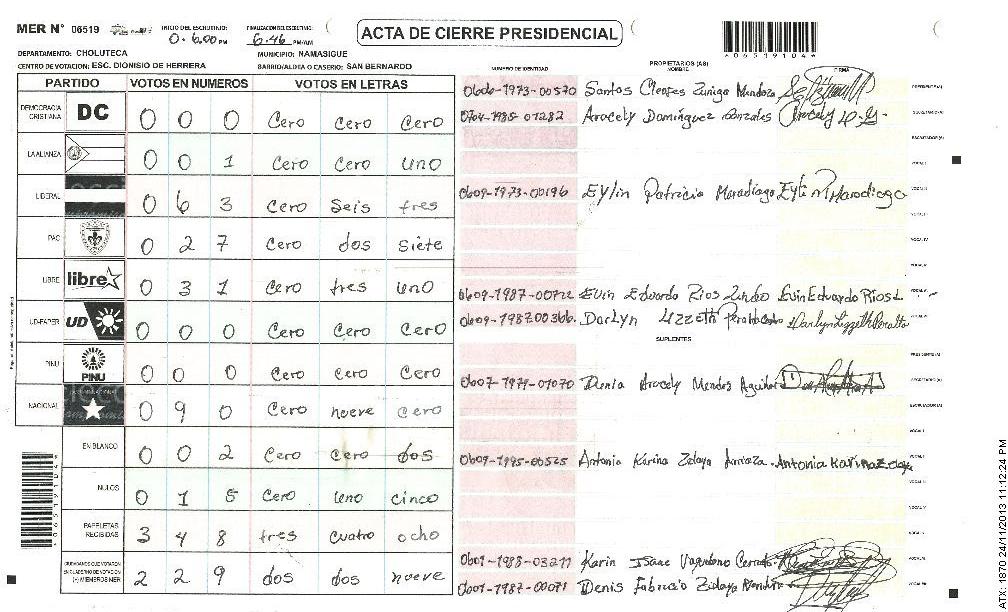 MER N° 06519
INICIO DEL ESCRUTINIO:
0-6:00 PM
FINALIZACION DEL ESCRUTINIO:
6:46 PM/AM
ACTA DE CIERRE PRESIDENCIAL
*06519104*
DEPARTAMENTO: CHOLUTECA
MUNICIPIO: NAMASIGUE
CENTRO DE VOTACION: ESC. DIONISIO DE HERRERA
BARRIO/ALDEA O CASERIO: SAN BERNARDO
PARTIDO VOTOS EN NUMEROS VOTOS EN LETRAS
DEMOCRACIA CRISTIANA DC 0 0 0 Cero Cero Cero
LA ALIANZA 0 0 1 Cero Cero uno
LIBERAL 0 6 3 Cero Seis tres
PAC 0 2 7 Cero dos Siete
LIBRE libre 0 3 1 Cero tres uno
UD-FAPER UD 0 0 0 Cero Cero Cero
PINU PINU 0 0 0 Cero Cero Cero
NACIONAL 0 9 0 Cero nueve cero
EN BLANCO 0 0 2 Cero cero dos
NULOS 0 1 5 Cero uno cinco
PAPELETAS RECIBIDAS 3 4 8 tres cuatro ocho
CIUDADANOS QUE VOTARON EN CUADERNO DE VOTACION (+) MIEMBROS MER 2 2 9 dos dos nueve
NUMERO DE IDENTIDAD PROPIETARIOS (AS) NOMBRE FIRMA
0606-1973-00570 Santos Cleofes Zuniga Mendoza PRESIDENTE(A)
0704-1985-01282 Aracely Dominguez Gonzales SECRETARIO(A)
ESCRUTADOR(A)
VOCAL I
0609-1973-00196 Eylin Patricia Maradiaga VOCAL II
VOCAL III
VOCAL IV
VOCAL V
0609-1987-00722 Evin Eduardo Rios Evin Eduardo Rios L
0609-1987-00366 Darlyn Lizzeth Darlyn Lizzeth Peralta
SUPLENTES
PRESIDENTE(A)
0607-1979-01070 Denia Aracely Mendez Aguilera SECRETARIO(A)
ESCRUTADOR(A)
VOCAL I
0609-1995-00525 Antonia Karina Zelaya Antonia Karina Zelaya
0601-1988-03211 Karin Isaac
0601-1987-00071 Denis Fabricio Zelaya
*06519104*
ATX: 1870 24/11/2013 11:12:24 PM